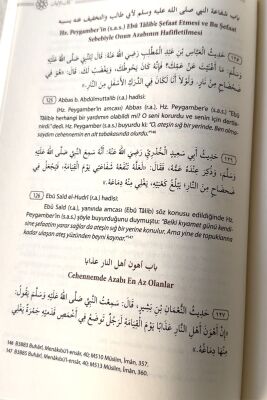 باب شفاعة النبي صلى الله عليه وسلم لأبي طالب والتخفيف عنه بسببه
Hz. Peygamber'in (s.a.s.) Ebû Tâlib'e Şefaat Etmesi ve Bu Şefaat
Sebebiyle Onun Azabının Hafifletilmesi
١٢٥ حَدِيثُ الْعَبَّاسِ بْنِ عَبْدِ الْمُطَّلِبِ رَضِيَ اللَّهُ عَنْهُ: قَالَ لِلنَّبِيِّ صَلَّى اللَّهُ عَلَيْهِ
وَسَلَّمَ، مَا أَغْنَيْتَ عَنْ عَمِّكَ؟ فَإِنَّهُ كَانَ يَحُوطُكَ، وَيَغْضَبُ لَكَ. قَالَ: «هُوَ فِي
ضَحْضَاحٍ مِنْ نَارٍ، وَلَوْلَا أَنَا لَكَانَ فِي الدَّرَكِ الْأَسْفَلِ مِنَ النَّارِ».
125 Abbas b. Abdülmuttalib (r.a.) hadîsi:
(Hz. Peygamber'in amcası) Abbas (r.a.), Hz. Peygamber'e (s.a.s.) "Ebû
Tâlib'e herhangi bir yardımın olabildi mi? O seni korurdu ve senin için dertle-
nirdi." dedi. Hz. Peygamber (s.a.s.) buyurdu ki: "O, ateşin sığ bir yerinde. Ben olma-
saydım cehennemin en alt tabakasında olurdu."
١٢٦ حَدِيثُ أَبِي سَعِيدٍ الْخُدْرِيِّ رَضِيَ اللَّهُ عَنْهُ: أَنَّهُ سَمِعَ النَّبِيَّ صَلَّى اللَّهُ عَلَيْهِ
وَسَلَّمَ، وَذُكِرَ عِنْدَهُ عَمُّهُ، فَقَالَ: «لَعَلَّهُ تَنْفَعُهُ شَفَاعَتِي يَوْمَ الْقِيَامَةِ، فَيُجْعَلُ فِي
ضَحْضَاحٍ مِنَ النَّارِ، يَبْلُغُ كَعْبَيْهِ، يَغْلِي مِنْهُ دِمَاغُهُ».
126 Ebû Saîd el-Hudrî (r.a.) hadîsi:
Ebû Saîd (r.a.), yanında amcası (Ebû Tâlib) söz konusu edildiğinde Hz.
Peygamber'in (s.a.s.) şöyle buyurduğunu duymuştu: "Belki kıyamet günü kendi-
sine şefaatin yarar sağlar da ateşin sığ bir yerine konulur. Ama yine de topuklarına
kadar ulaşan ateş yüzünden beyni kaynar."
باب أهون أهل النار عذابا
Cehennemde Azabı En Az Olanlar
١٢٧ حَدِيثُ النُّعْمَانِ بْنِ بَشِيرٍ، قَالَ: سَمِعْتُ النَّبِيَّ صَلَّى اللَّهُ عَلَيْهِ وَسَلَّمَ يَقُولُ:
«إِنَّ أَهْوَنَ أَهْلِ النَّارِ عَذَابًا يَوْمَ الْقِيَامَةِ لَرَجُلٌ تُوضَعُ فِي أَخْمَصِ قَدَمَيْهِ جَمْرَةٌ يَغْلِي
مِنْهَا دِمَاغُهُ».
146 B3883 Buhârî, Menâkıbü'l-ensâr, 40; M510 Müslim, Îmân, 357.
147 B3885 Buhârî, Menâkıbü'l-ensâr, 40; M513 Müslim, Îmân, 360.